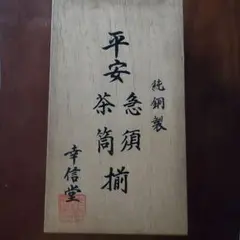 純銅製
平安
急須
茶筒
揃
幸信堂